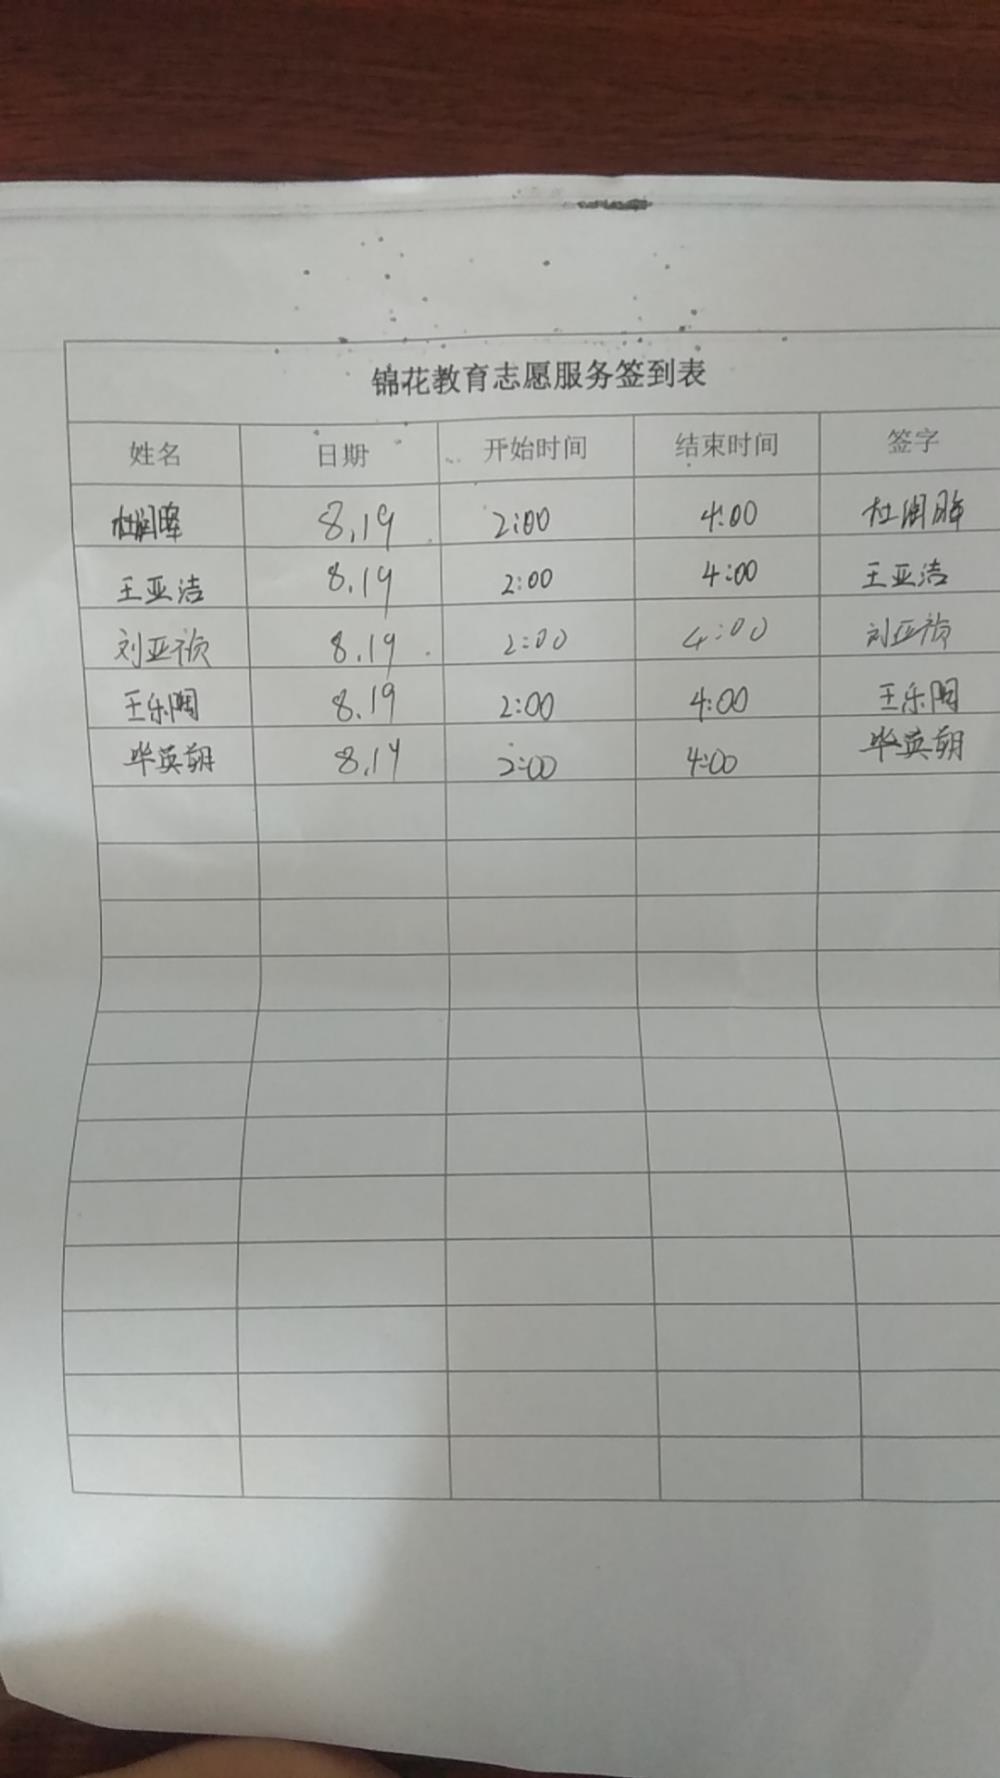 锦花教育志愿服务签到表
姓名 日期 开始时间 结束时间 签字
杜润晖 8.19 2:00 4:00 杜润晖
王亚洁 8.19 2:00 4:00 王亚洁
刘亚祯 8.19 2:00 4:00 刘亚祯
王乐陶 8.19 2:00 4:00 王乐陶
毕英朝 8.19 2:00 4:00 毕英朝